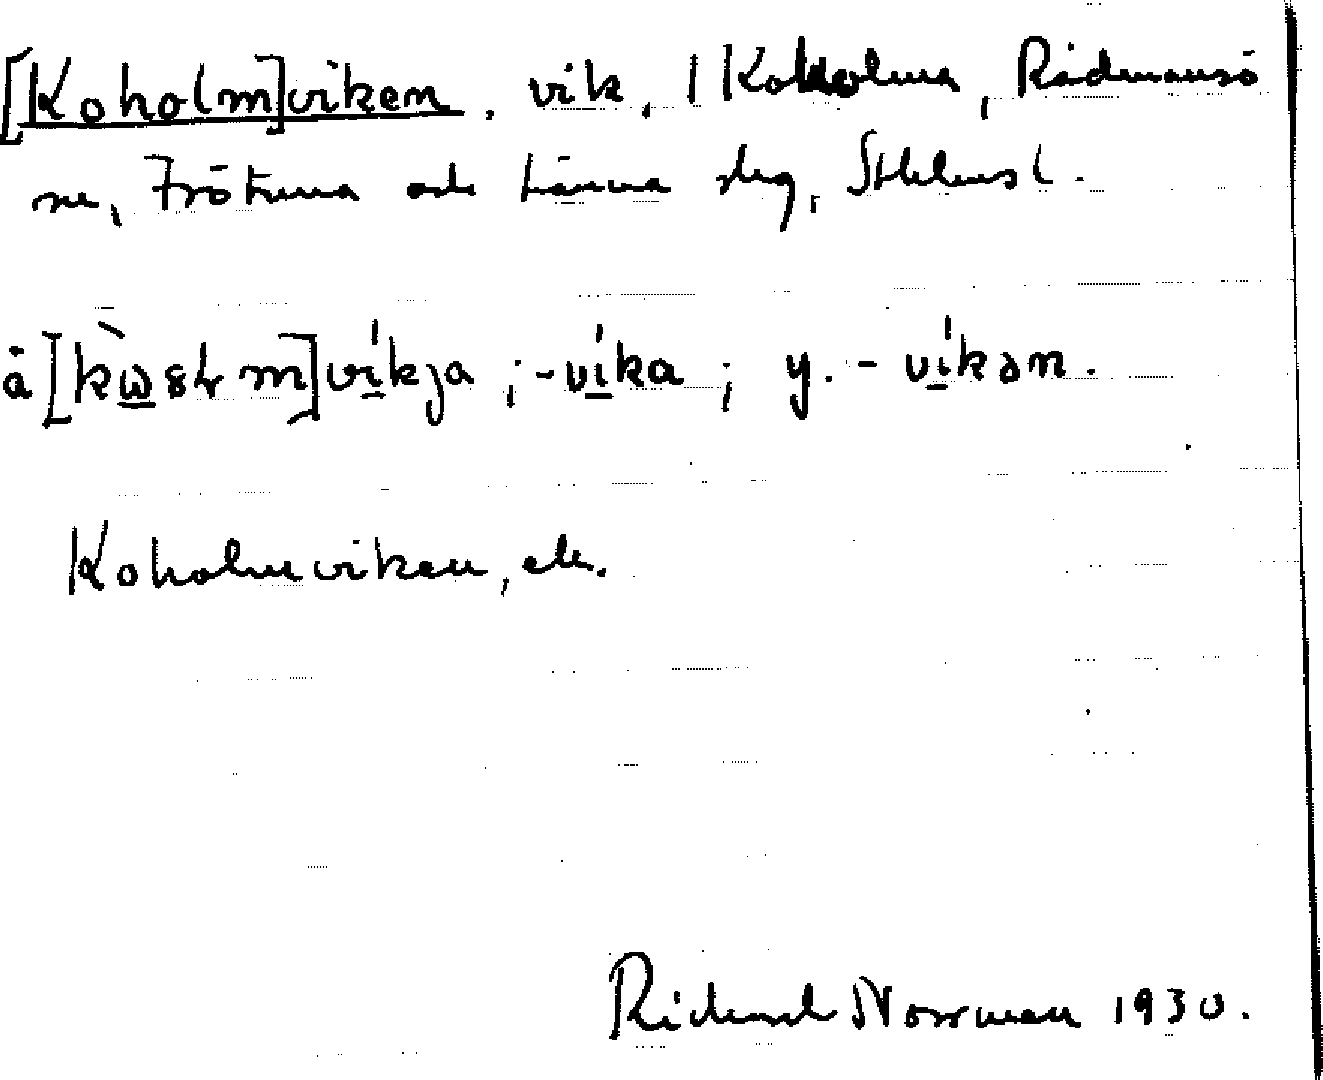 [Koholm]viken, vik, 1 Koholma, Rådmansö
sn, Frötuna och Länna slg, Sthlmsl.
å [kὼ̲ɞɫm]ví̲kja ; -ví̲ka ; y. - ví̲kən.
Koholmviken, ek.
Rickard Norrman 1930.